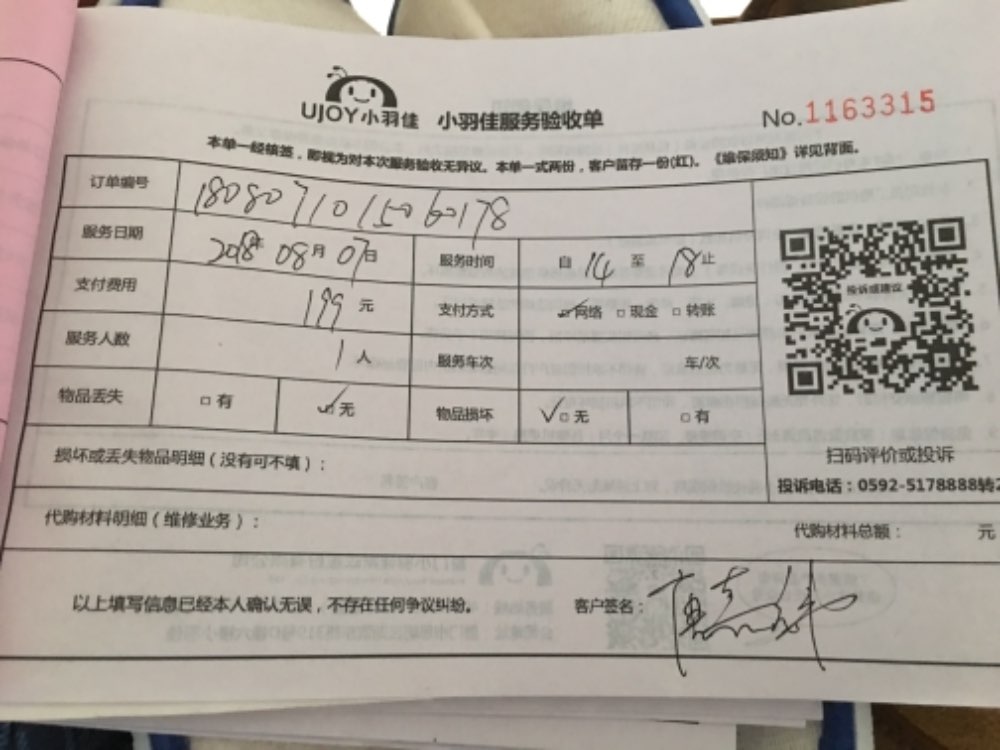 UJOY小羽佳 小羽佳服务验收单 No.1163315
本单一经核签，即视为对本次服务验收无异议。本单一式两份，客户留存一份(红)。《维保须知》详见背面。
订单编号 180807101506178
服务日期 2018年08月07日 服务时间 自14至18止
支付费用 199元 支付方式 网络 现金 转账
服务人数 1人 服务车次 车/次
物品丢失 有 无 物品损坏 无 有
投诉或建议
扫码评价或投诉
损坏或丢失物品明细（没有可不填）：
投诉电话：0592-5178888转2
代购材料明细（维修业务）：
代购材料总额： 元
以上填写信息已经本人确认无误，不存在任何争议纠纷。 客户签名：